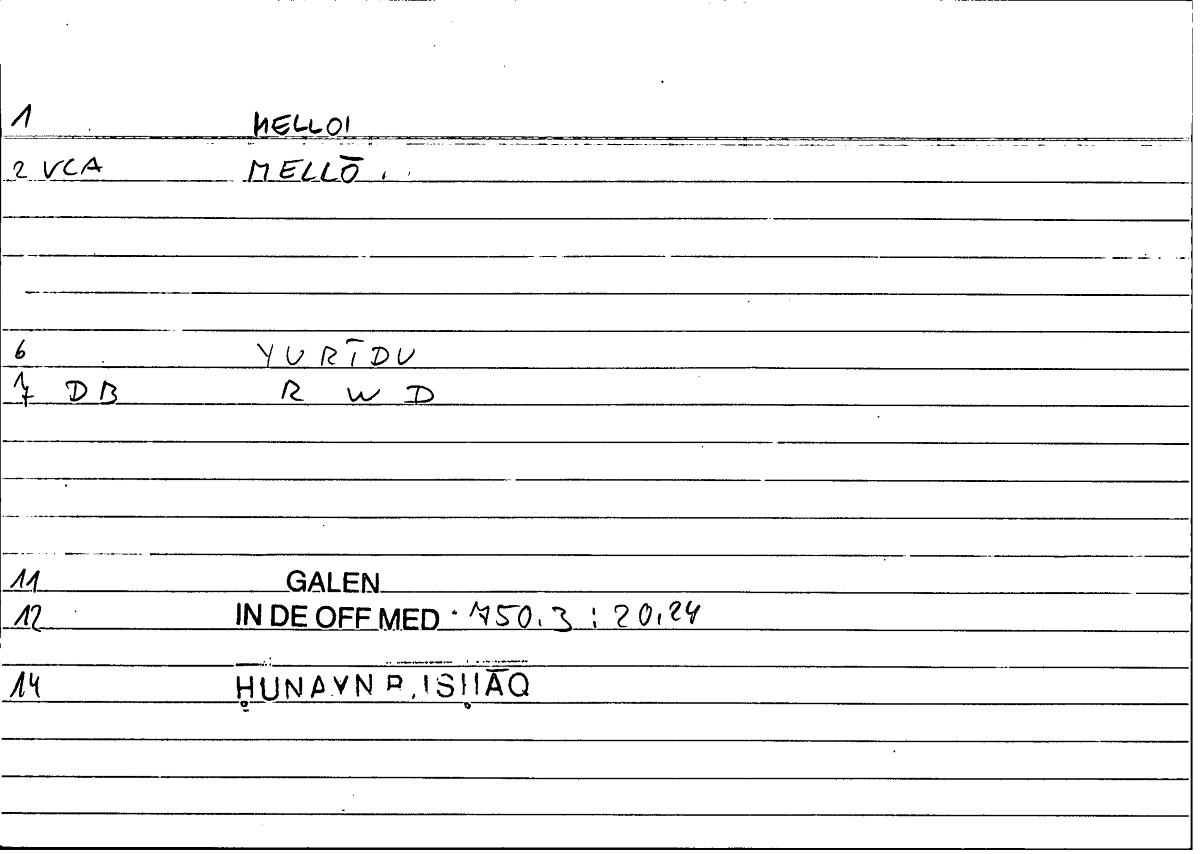 1 MELLOI
2 VCA MELLŌ . .
6 YURĪDU
7 DB R W D
11 GALEN
12 IN DE OFF MED 750.3 : 20,24
14 ḤUNAYN B. ISḤĀQ